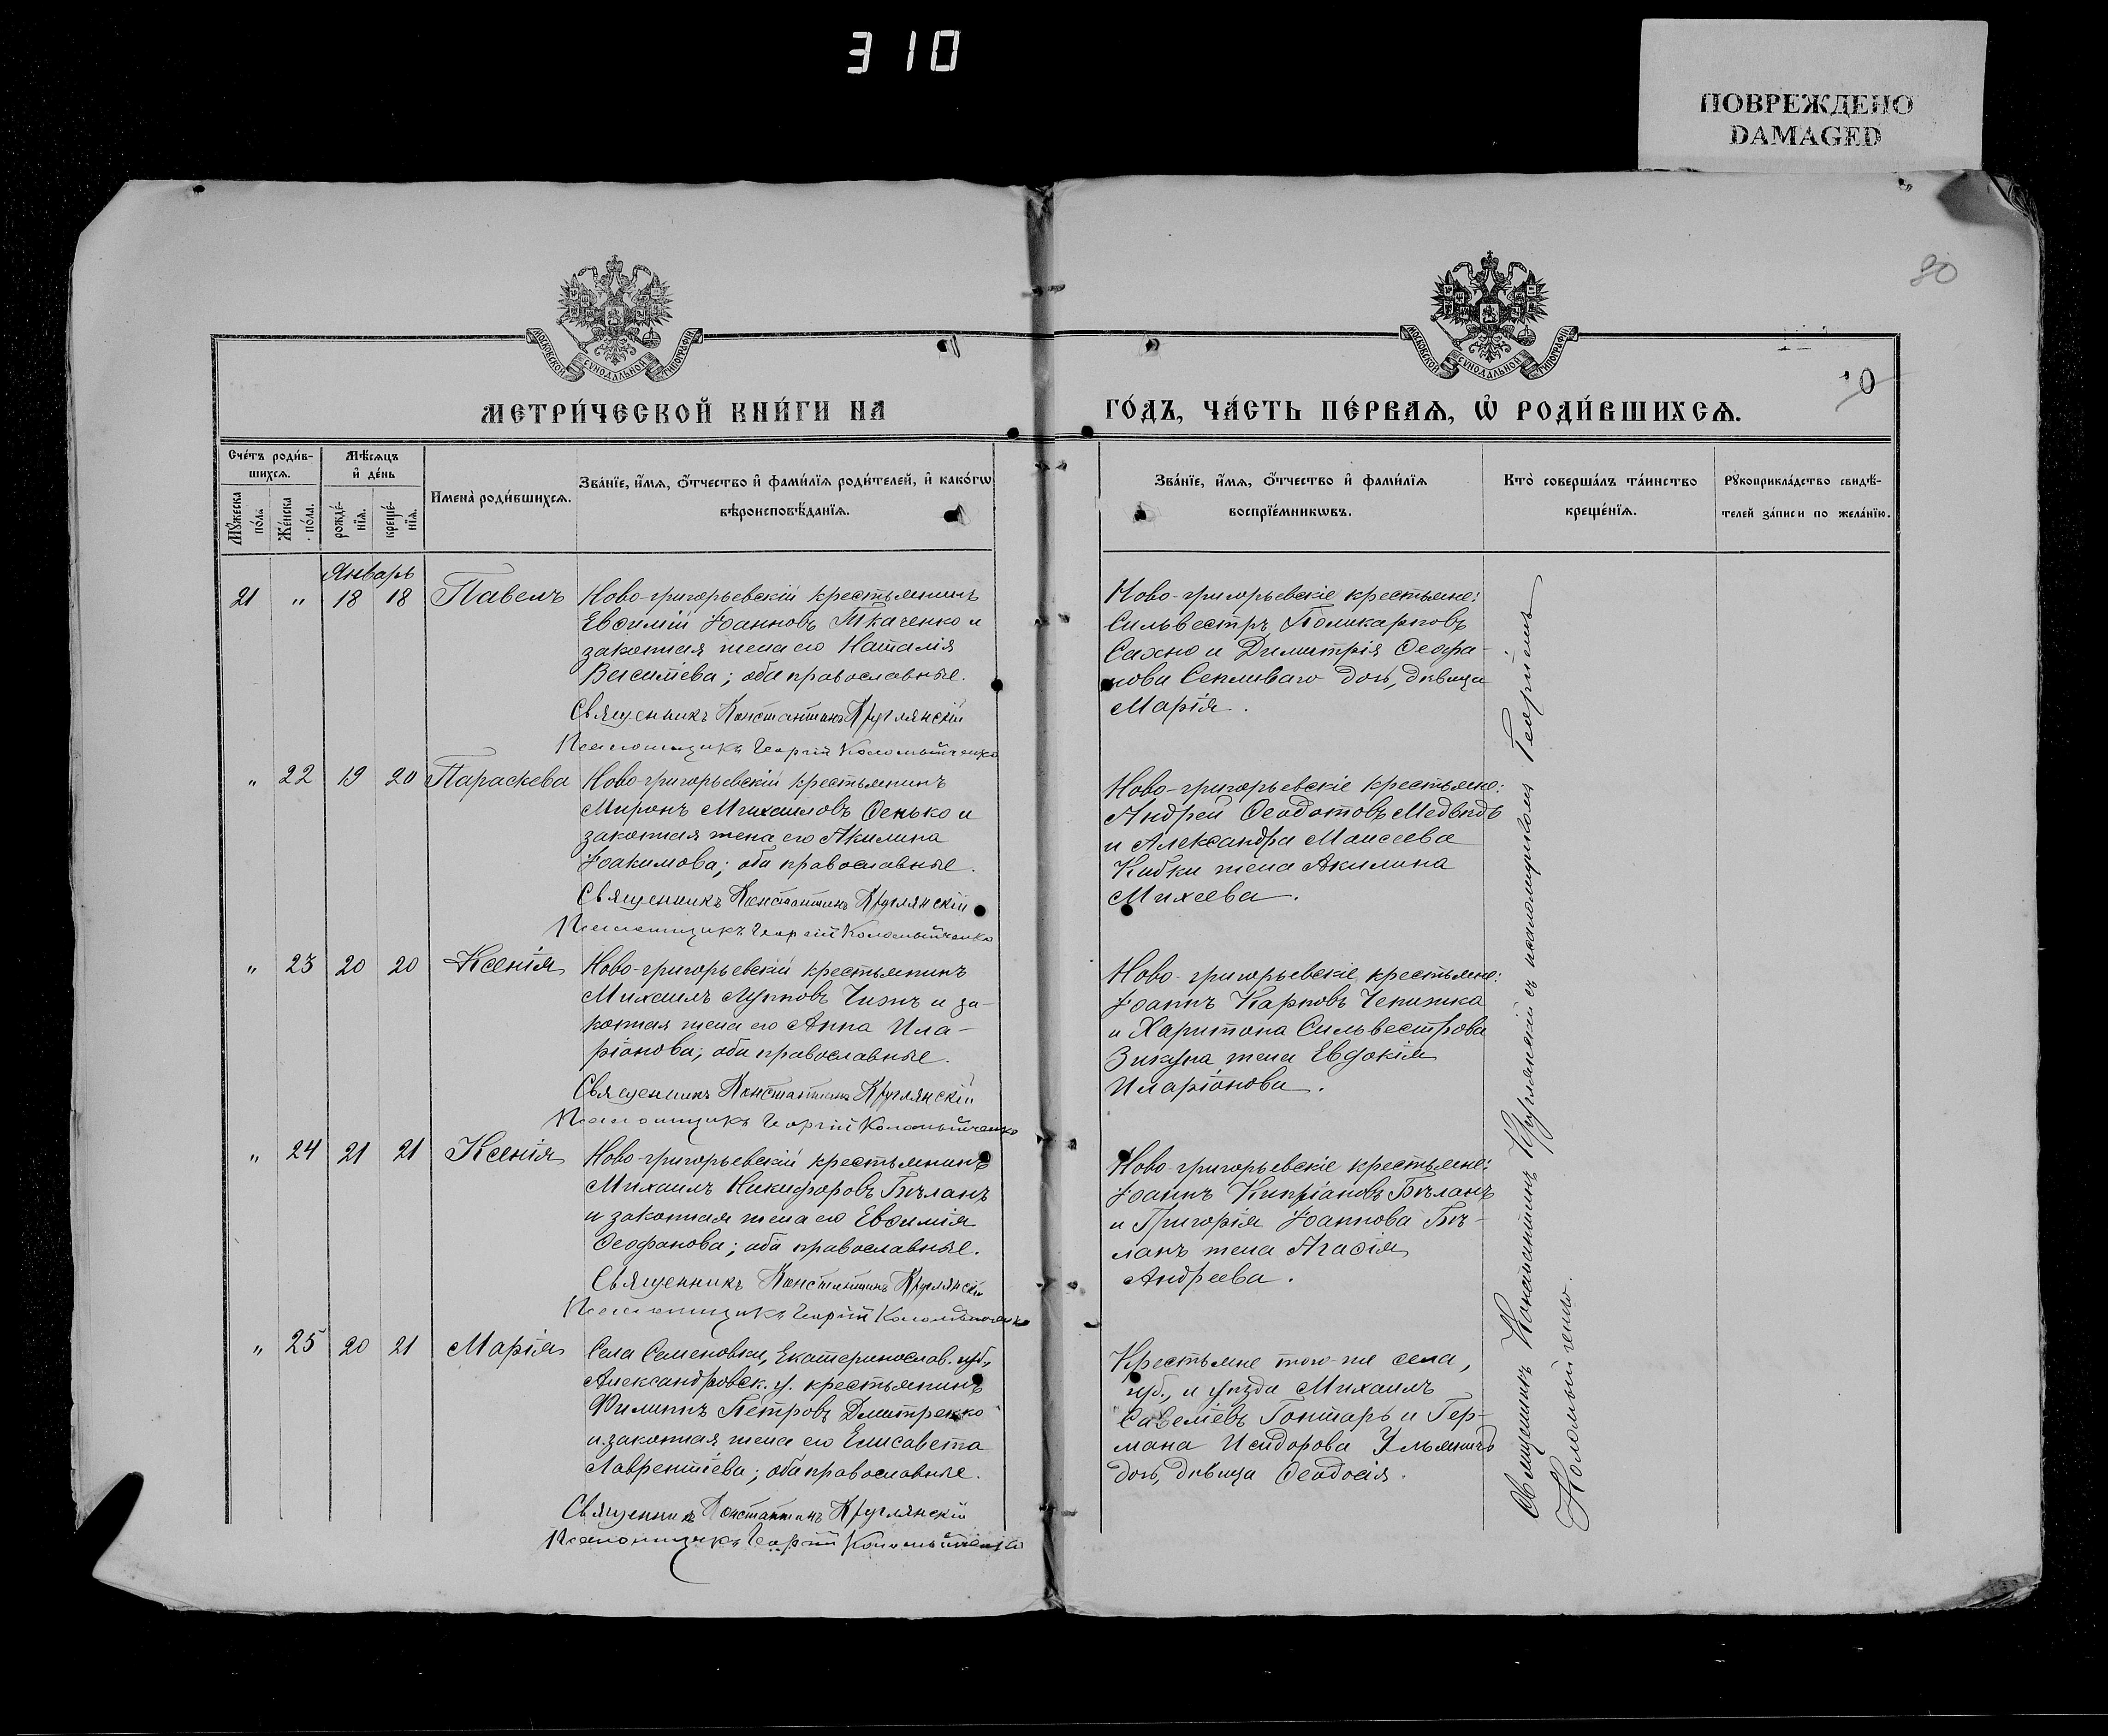 310
ПОВРЕЖДЕНО
DAMAGED
80
МОСКОВСКОЙ СѴНОДАЛЬНОЙ ТИПОГРАФІИ
МОСКОВСКОЙ СѴНОДАЛЬНОЙ ТИПОГРАФІИ
МЕТРИ́ЧЕСКОЙ КНИ́ГИ НА
ГО́ДЪ, ЧА́СТЬ ПЕ́РВАѦ, Ѡ҆ РОДИ́ВШИХСѦ.
Сче́тъ роди́в-
шихсѧ.
Мꙋ́жеска по́ла
Же́нска по́ла.
Мѣ́сѧцъ
и҆ де́нь
рожде́-
нїѧ.
креще́-
нїѧ.
Имена̀ роди́вшихсѧ.
Зва́нїе, и҆́мѧ, ѻ҆́тчество и҆ фами́лїѧ роди́телей, и҆ како́гѡ
вѣроисповѣ́данїѧ.
Зва́нїе, и҆́мѧ, ѻ҆́тчество и҆ фами́лїѧ
воспрїе́мникѡвъ.
Кто̀ соверша́лъ та́инство
креще́нїѧ.
Рꙋкоприкла́дство свидѣ́-
телей за́писи по жела́нїю.
Январь
21 " 18 18 Павелъ
Ново-григорьевскій крестьянинъ
Евѳимій Іоанновъ Ткаченко и
законная жена его Наталія
Василіева; оба православные.
Священникъ Константинъ Круглянскій
Псаломщикъ Георгій Коломыйченко
Ново-григорьевскіе крестьяне:
Сильвестръ Поликарповъ
Сахно и Димитрія Ѳеофа-
нова дочь, дѣвица
Марія.
" 22 19 20 Параскева
Ново-григорьевскій крестьянинъ
Миронъ Михаиловъ Ѳенько и
законная жена его Акилина
Іоакимова; оба православные.
Священникъ Константинъ Круглянскій
Псаломщикъ Георгій Коломыйченко
Ново-григорьевскіе крестьяне:
Андрей Ѳеодотовъ Медвѣдь
и Александра Моисеева
Кибки жена Акилина
Михеева.
" 23 20 20 Ксенія
Ново-григорьевскій крестьянинъ
Михаилъ Лупповъ Чижъ и за-
конная жена его Анна Ила-
ріонова; оба православные.
Священникъ Константинъ Круглянскій
Псаломщикъ Георгій Коломыйченко
Ново-григорьевскіе крестьяне:
Іоаннъ Карповъ Чепижка
и Харитона Сильвестрова
жена Евдокія
Иларіонова.
" 24 21 21 Ксенія
Ново-григорьевскій крестьянинъ
Михаилъ Никифоровъ Бѣланъ
и законная жена его Евѳимія
Ѳеофанова; оба православные.
Священникъ Константинъ Круглянскій
Псаломщикъ Георгій Коломыйченко
Ново-григорьевскіе крестьяне:
Іоаннъ Кипріановъ Бѣланъ
и Григорія Іоаннова Бѣ-
ланъ жена Агаѳія
Андреева.
" 25 20 21 Марія
Села Семеновки, Екатеринослав. губ.,
Александровск. у. крестьянинъ
Филиппъ Петровъ Дмитренко
и законная жена его Елисавета
Лаврентіева; оба православные.
Священникъ Константинъ Круглянскій
Псаломщикъ Георгій Коломыйченко
Крестьяне того-же села,
губ., и уѣзда Михаилъ
Савеліевъ Гонтарь и Гер-
мана Исидорова
дочь, дѣвица Ѳеодосія.
Священникъ Константинъ Круглянскій съ псаломщикомъ Георгіемъ
Коломыйченко.